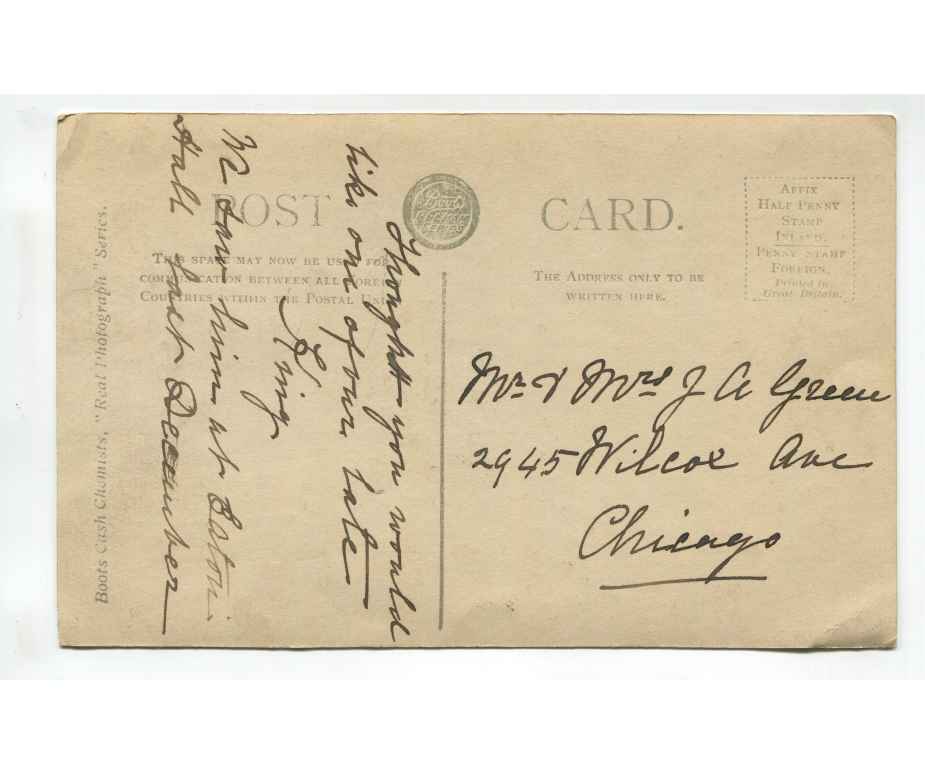 POST CARD.
Boots
SERIES
THIS SPACE MAY NOW BE USED FOR
COMMUNICATION BETWEEN ALL FOREIGN
COUNTRIES WITHIN THE POSTAL UNION
THE ADDRESS ONLY TO BE
WRITTEN HERE.
AFFIX
HALF PENNY
STAMP
INLAND.
PENNY STAMP
FOREIGN.
Printed in
Great Britain.
Boots Cash Chemists, "Real Photograph" Series.
Thought you would
like one of our late
King
We saw him at Eaton
Hall last December
Mr & Mrs J A Green
2945 Wilcox Ave
Chicago